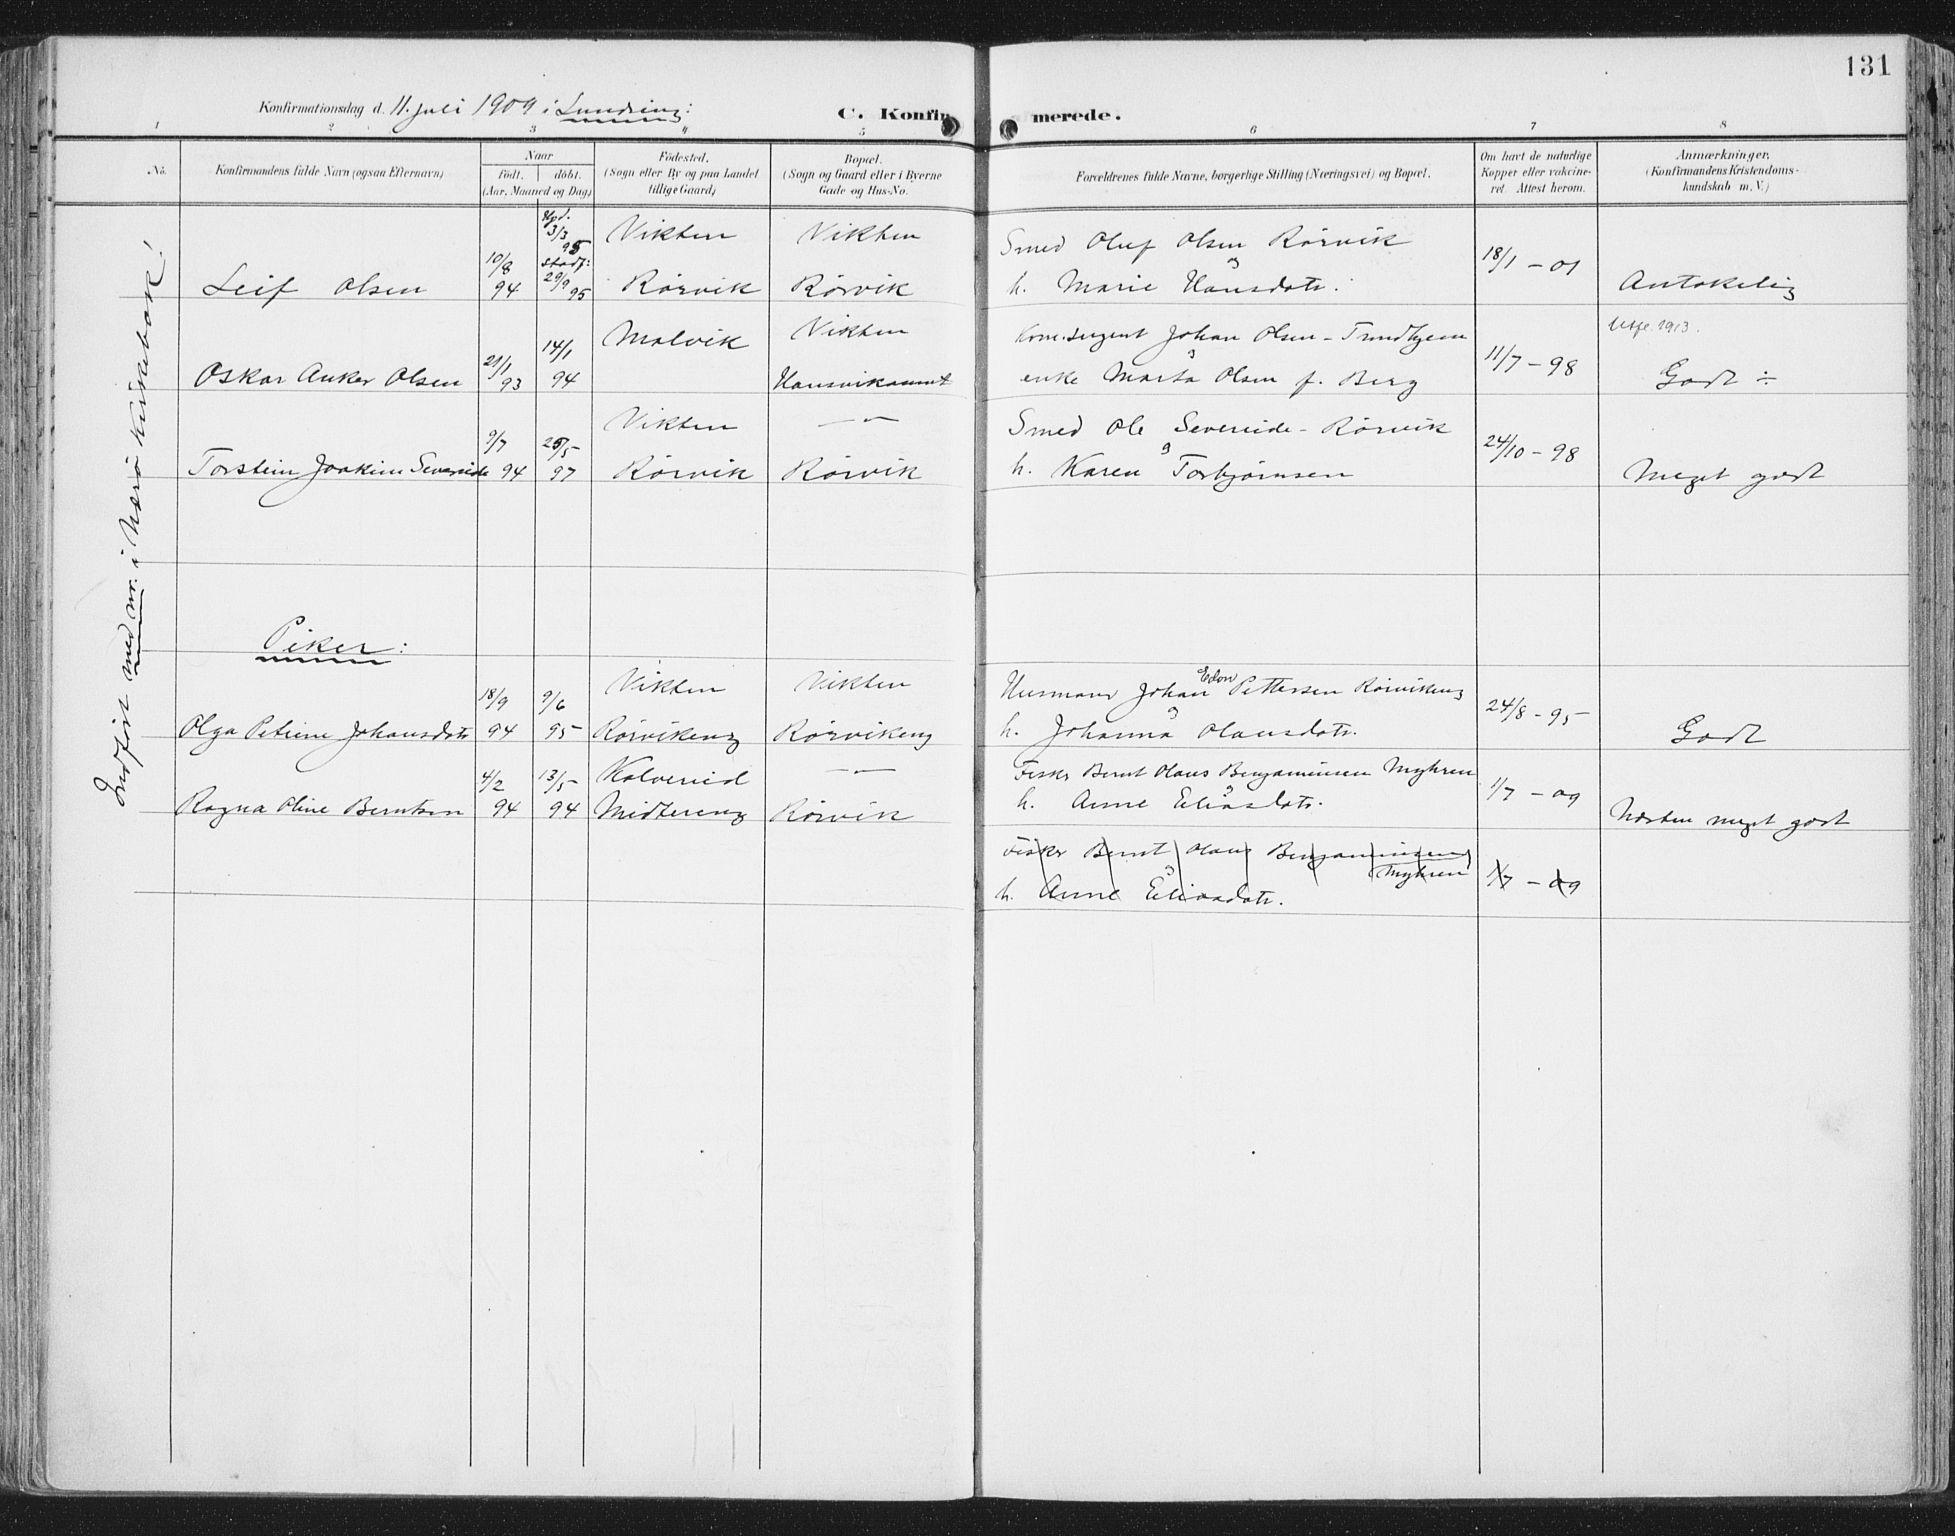 131
Konfirmationsdag d. 11. juli 1909 i Lundring:
C. Konfirmerede.
1 2 3 4 5 6 7 8
No.
Konfirmandens fulde Navn (ogsaa Efternavn)
Naar
født. døbt.
(Aar, Maaned og Dag)
Fødested.
(Sogn eller By og paa Landet
tillige Gaard)
Bopæl.
(Sogn og Gaard eller i Byerne
Gade og Hus-No.
Forældrenes fulde Navne, borgerlige Stilling (Næringsvei) og Bopæl.
Om havt de naturlige
Kopper eller vakcine-
ret. Attest herom.
Anmærkninger.
(Konfirmandens Kristendoms-
kundskab m. V.)
Indført med nr. i Nærø kirkebok!
Leif Olsen
10/8 94
Hjd. 3/3 95
stadf: 29/9 95
Vikten
Rørvik
Vikten
Rørvik
Smed Oluf Olsen Rørvik
og
h. Marie Hansdatr.
18/1 - 01
Antakelig
Oskar Anker Olsen
21/1 93
14/1 94
Malvik
Vikten
Hansvikaunet
Kom.sergent Johan Olsen - Trundhjem
og
enke Marta Olsen f. Berg
11/7 - 98
Utfl. 1913.
Godt ÷
Torstein Joakim Severeide
9/7 94
25/5 97
Vikten
Rørvik
— " —
Rørvik
Smed Ole Severeide - Rørvik
og
h. Karen Torbjørnsen
24/10 - 98
Meget godt
Piker:
Olga Petrine Johansdatr
18/9 94
9/6 95
Vikten
Rørvikeng
Vikten
Rørvikeng
Husmand Johan Edon Pettersen Rørvikeng
og
h. Johanna Olausdatr.
24/8 - 95
Godt
Ragna Oline Berntsen
4/2 94
13/5 94
Kolvereid
Midtereng
— " —
Rørvik
Fisker Bernt Olaus Benjaminsen Myhren
og
h. Anne Eliasdatr.
1/7 - 09
Næsten meget godt
Fisker Bernt Olaus Benjaminsen
Myhren
og
h. Anne Eliasdatr.
1/7 - 09